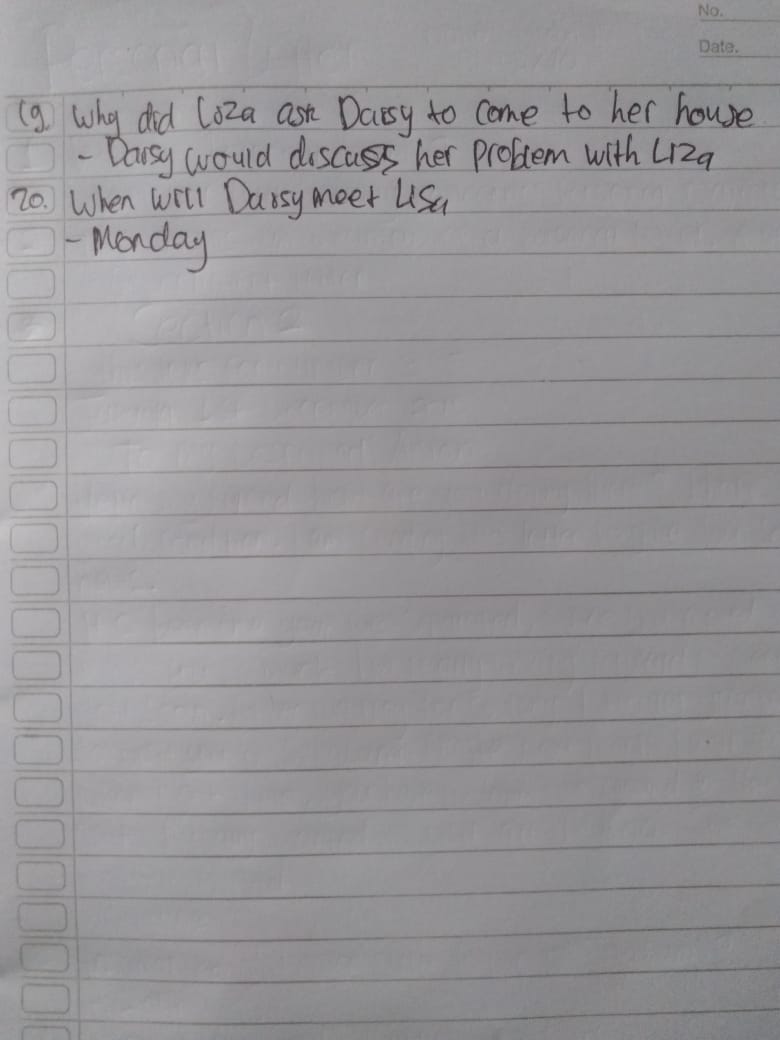 No.
Date.
19. Why did Liza ask Daisy to come to her house
- Daisy would discuss her problem with Liza
20. When will Daisy meet Lisa
- Monday